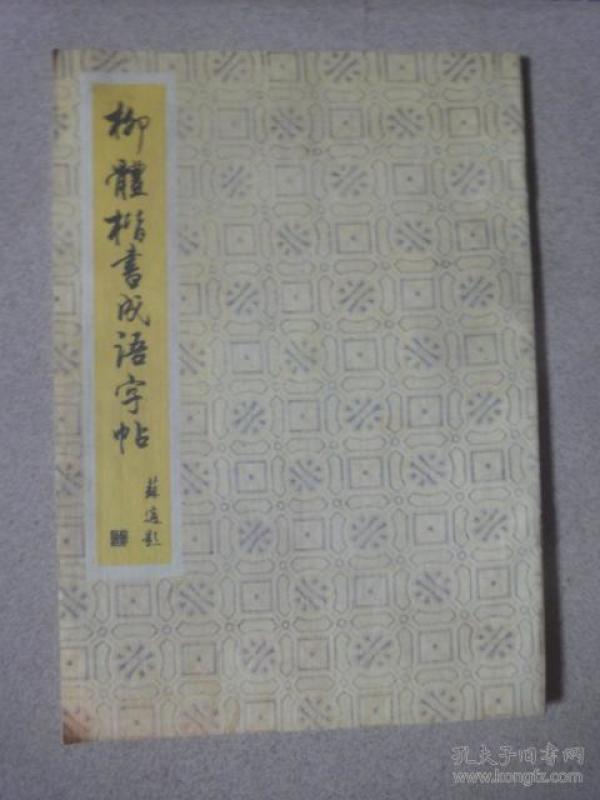 柳體楷書成语字帖
蘇適題
孔夫子旧书网
www.kongfz.com